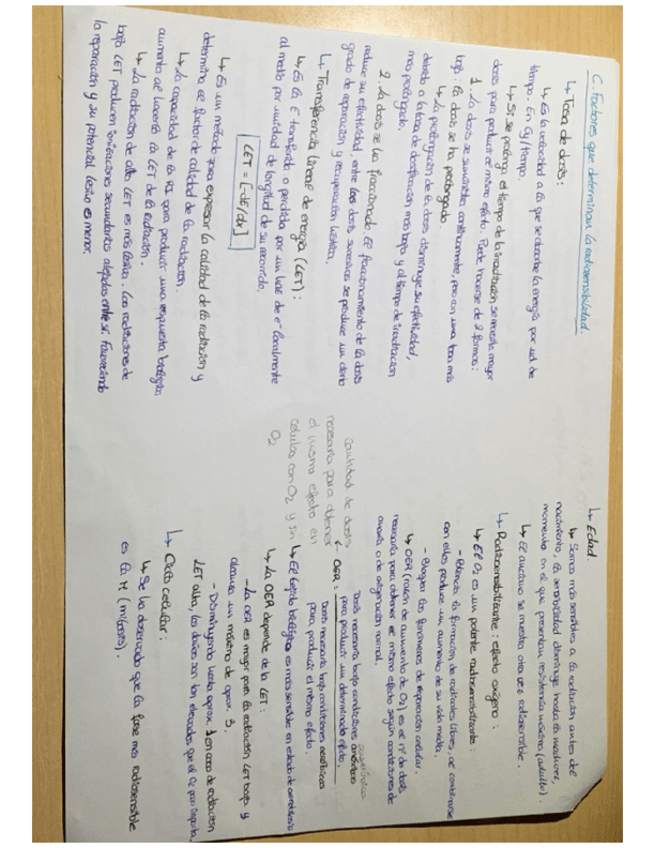 C. Factores que determinan la radiosensibilidad.
↳ Tasa de dosis:
↳ Es la velocidad a la que se absorbe la energía por ud de
tiempo. En Gy/tiempo.
↳ Si se prolonga el tiempo de la irradiación se necesita mayor
dosis para producir el mismo efecto. Puede hacerse de 2 formas:
1. La dosis se suministra continuamente, pero con una tasa más
baja: la dosis se ha prolongado.
↳ La prolongación de la dosis disminuye su efectividad,
debido a la tasa de dosificación más baja y al tiempo de irradiación
más prolongado.
2. La dosis se ha fraccionado. El fraccionamiento de la dosis
reduce su efectividad, entre las dosis sucesivas se produce un cierto
grado de reparación y recuperación hística.
↳ Transferencia lineal de energía (LET):
↳ Es la E transferida o perdida por un haz de e⁻ localmente
al medio por unidad de longitud de su recorrido.
LET = [-dE/dx]
↳ Es un método para expresar la calidad de la radiación y
determina el factor de calidad de la radiación.
↳ La capacidad de la RI para producir una respuesta biológica
aumenta al hacerlo la LET de la radiación.
↳ La radiación de alto LET es más lesiva. Las radiaciones de
bajo LET producen ionizaciones secundarias alejadas entre sí. Favoreciendo
la reparación y su potencial lesivo es menor.
↳ Edad.
↳ Somos más sensibles a la radiación antes del
nacimiento, la sensibilidad disminuye hasta la madurez,
momento en el que presentan resistencia máxima (adulto).
↳ El anciano se muestra otra vez radiosensible.
↳ Radiosensibilizante: efecto oxígeno:
↳ El O₂ es un potente radiosensibilizante:
- Potencia la formación de radicales libres, al combinarse
con ellos produce un aumento de su vida media.
- Bloquea los fenómenos de reparación celular.
↳ OER (razón de aumento de O₂) es el nº de dosis
necesaria para obtener el mismo efecto según condiciones de
anoxia o de oxigenación normal.
anaeróbicas
OER = Dosis necesaria bajo condiciones anóxicas
para producir un determinado efecto.
Dosis necesaria bajo condiciones aeróbicas
para producir el mismo efecto.
Cantidad de dosis
necesaria para obtener
el mismo efecto en
células con O₂ y sin
O₂
↳ El tejido biológico es más sensible en estado de aerobiosis
↳ La OER depende de la LET:
- La OER es mayor para la radiación LET bajo y
alcanza un máximo de aprox. 3.
- Disminuyendo hasta aprox. 1 en caso de radiación
LET alta, los daños son tan elevados que el O₂ poco importa.
↳ Ciclo celular:
↳ Se ha observado que la fase más radiosensible
es la M (mitosis).